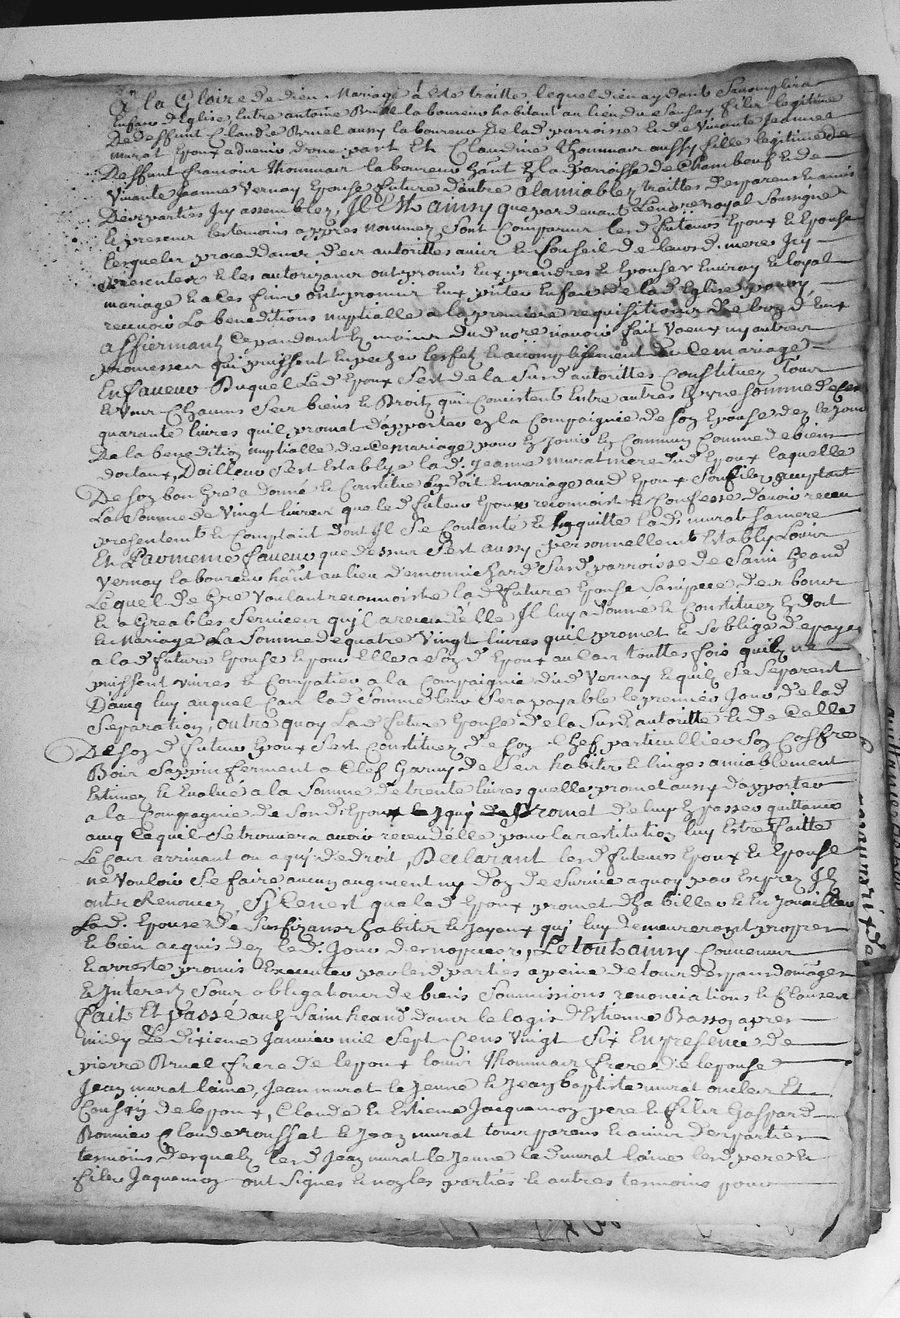 A la Gloire de dieu Mariage a Este traitte lequel dieu aydant Sacomplira
En face d'Eglise Entre antoine Bruel laboureur habitant au lieu du filz legitime
De deffunt Claude Bruel aussy laboureur de lad. parroisse et de Vivante Jeanne
murat Epoux advenir d'une part Et Claudine Thommair aussy fille legitime de
Deffunt francois Thommair laboureur habt En la parroisse de Chambeuf et de
Vivante Jeanne Vernay Epouse future d'autre a lamiable traittes d'es parens et amis
D'es parties Icy assemblez Il Est ainsy que pardevant Le no.re royal Soussigné
Et presens les temoins apprés nommez Sont Comparus lesd. futurs Epoux et Epouse
lesquels procedants d'es autorittes avis et Conseil de leurs d. meres Icy
presentes et les autorizans ont promis Eux prendres et Epouser En vray et loyal
mariage et a ces fins ont promis Eux pnter En face de lad. Eglise pour y
recevoir La beneditions nuptialle a la premiere requisitions de Lun d'eux
affiermantz Cependant Es mains dud. no.re n'avoir fait Voeux ny autres
promesses qui puissent Enpecher les fetz et acomplissement de Ce mariage
En faveur Duquel Led. Epoux Sest de la Susd. autorittes Constituez tous
et Uns Chacuns Ses biens et Droitz qui Consistent Entre autres En une Somme de Cent
quarante livres quil promet d'apporter En la Compagnie de Son Epouse dez le jour
De la benedition nuptialle de Ce mariage pour En Jouir En Commun Comme de biens
dortaux, D'ailleurs Sest Estably lad. Jeanne murat mere dud. Epoux laquelle
De Son bon Gre a donné et Constitue En Doit En mariage aud. Epoux Son filz acceptant
La Somme de Vingt livres que led. futeur Epoux reconnoist et Confesse d'avoir receu
presentement et Comptant dont Il Se Contante et En quitte lad. murat Sa mere
Et En la meme faveur que dessus Sest aussy personnellemt Estably Louis
Vernay laboureur habt au lieu d'emonnichard Susd. parroisse de Saint heand
Lequel de Gre Voulant reconnoistre lad. future Epouse Sa niepce d'es bons
Et a Greables Services quil a receu d'elle Il luy a donne et Constituez En Doit
En Mariage La Somme de quatre Vingt livres quil promet et Soblige d'e payer
a lad. future Epouse et pour Elle a Son d. Epoux au Cas toutes fois quilz ne
puissent vivres et Compatir a la Compagnie dud. Vernay et quilz Se Separent
D'auq. luy auquel Cas lad. Somme leur Sera payable le premier Jour de lad.
Separation, outre quoy Lad. future Epouse d'e la Susd. autoritte et de Celle
De Son d. futeur Epoux Sest Constituez d'e Son Chef particullier Son Coffre
Bois Sappin ferment a Clef Garny de Ses habitz et linges amiablement
Estimez et Evalue a la Somme de trente livres quelle promet aussy d'apporter
a la Compagnie de Son d. Epoux promet de luy En passer quittance
auq. Ce quil Se trouvera avoir receu d'elle pour la restitution luy Estre faitte
Le Cas arrivant ou a qui d'e droit, Declarant lesd. futeurs Epoux et Epouse
ne Vouloir Se faire aucun augment ny don de Survie a quoy par Exprez Ilz
ont Renoncez Si Cenest que led. Epoux promet d'habiller et En Jouailler
Lad. Epouse de Suffizans habitz et Joyaux qui luy demeureront propres
Et bien acquis dez led. Jour de nopces, Le tout ainsy Convenus
Et arreste promis Executer par lesd. parties a peine de tous d'espans domages
Et Interez Sous obligations de biens Soummissions renonciations et Clauses
Fait Et Passé aud. Saint heand dans le logis d'Estienne Basson apres
midy Le dixieme Janvier mil Sept Cens Vingt Six En presence de
pierre Bruel frere de lepoux louis Thommair frere d'e lepouse
Jean murat laine, Jean murat le Jeune et Jean baptiste murat oncles Et
Cousin de lepoux, Claude et Estienne Jacquemon pere et filz Gaspard
Bonnier Claude roussat et Jean murat tous parens et amis d'es parties
temoins desquelz lesd. Jean murat le Jeune led. murat laine lesd. pere et
filz Jaquemon ont Signes et non les parties et autres temoins pour